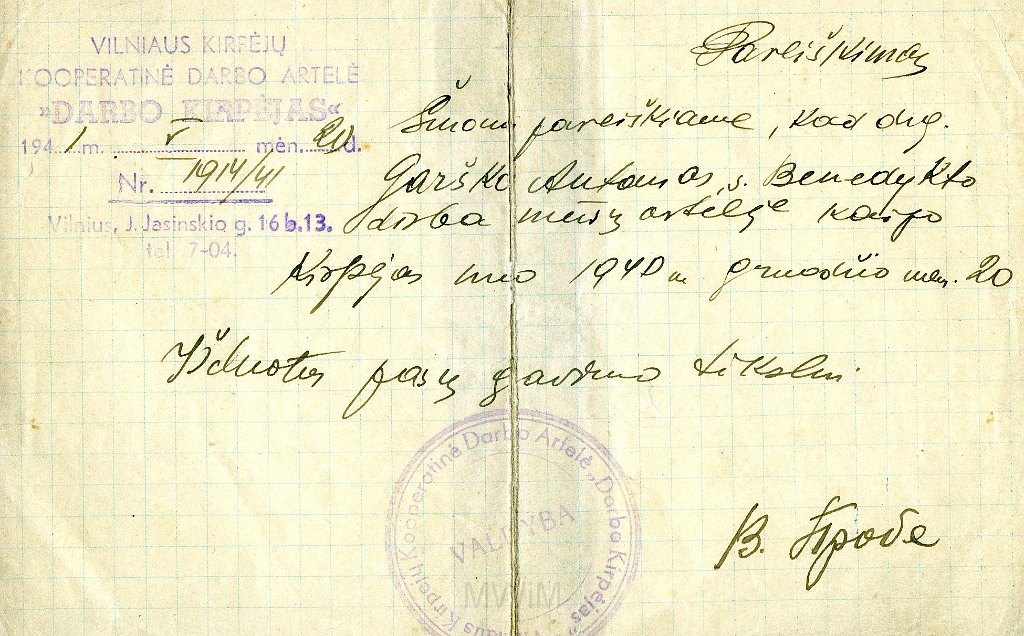 VILNIAUS KIRPĖJŲ
KOOPERATINĖ DARBO ARTELĖ
»DARBO KIRPĖJAS«
1941 m. V mėn. 20 d.
Nr. 1914/41
Vilnius, J. Jasinskio g. 16 b. 13.
tel. 7-04.
Pareiškimas
Šiuomi pareiškiame, kad drg.
Garško Antanas, s. Benedykto
dirba mūsų artelėje kaipo
Kirpėjas nuo 1940 m gruodžio men. 20
Išduotas pasų gavimo tikslui.
Kirpėjų Kooperatinė Darbo Artelė „Darbo Kirpėjas"
VALDYBA
MWiM
B.